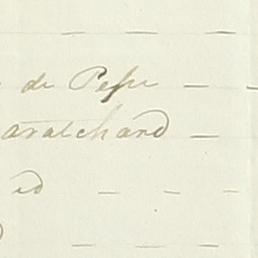 de Pesse
aratchand
id